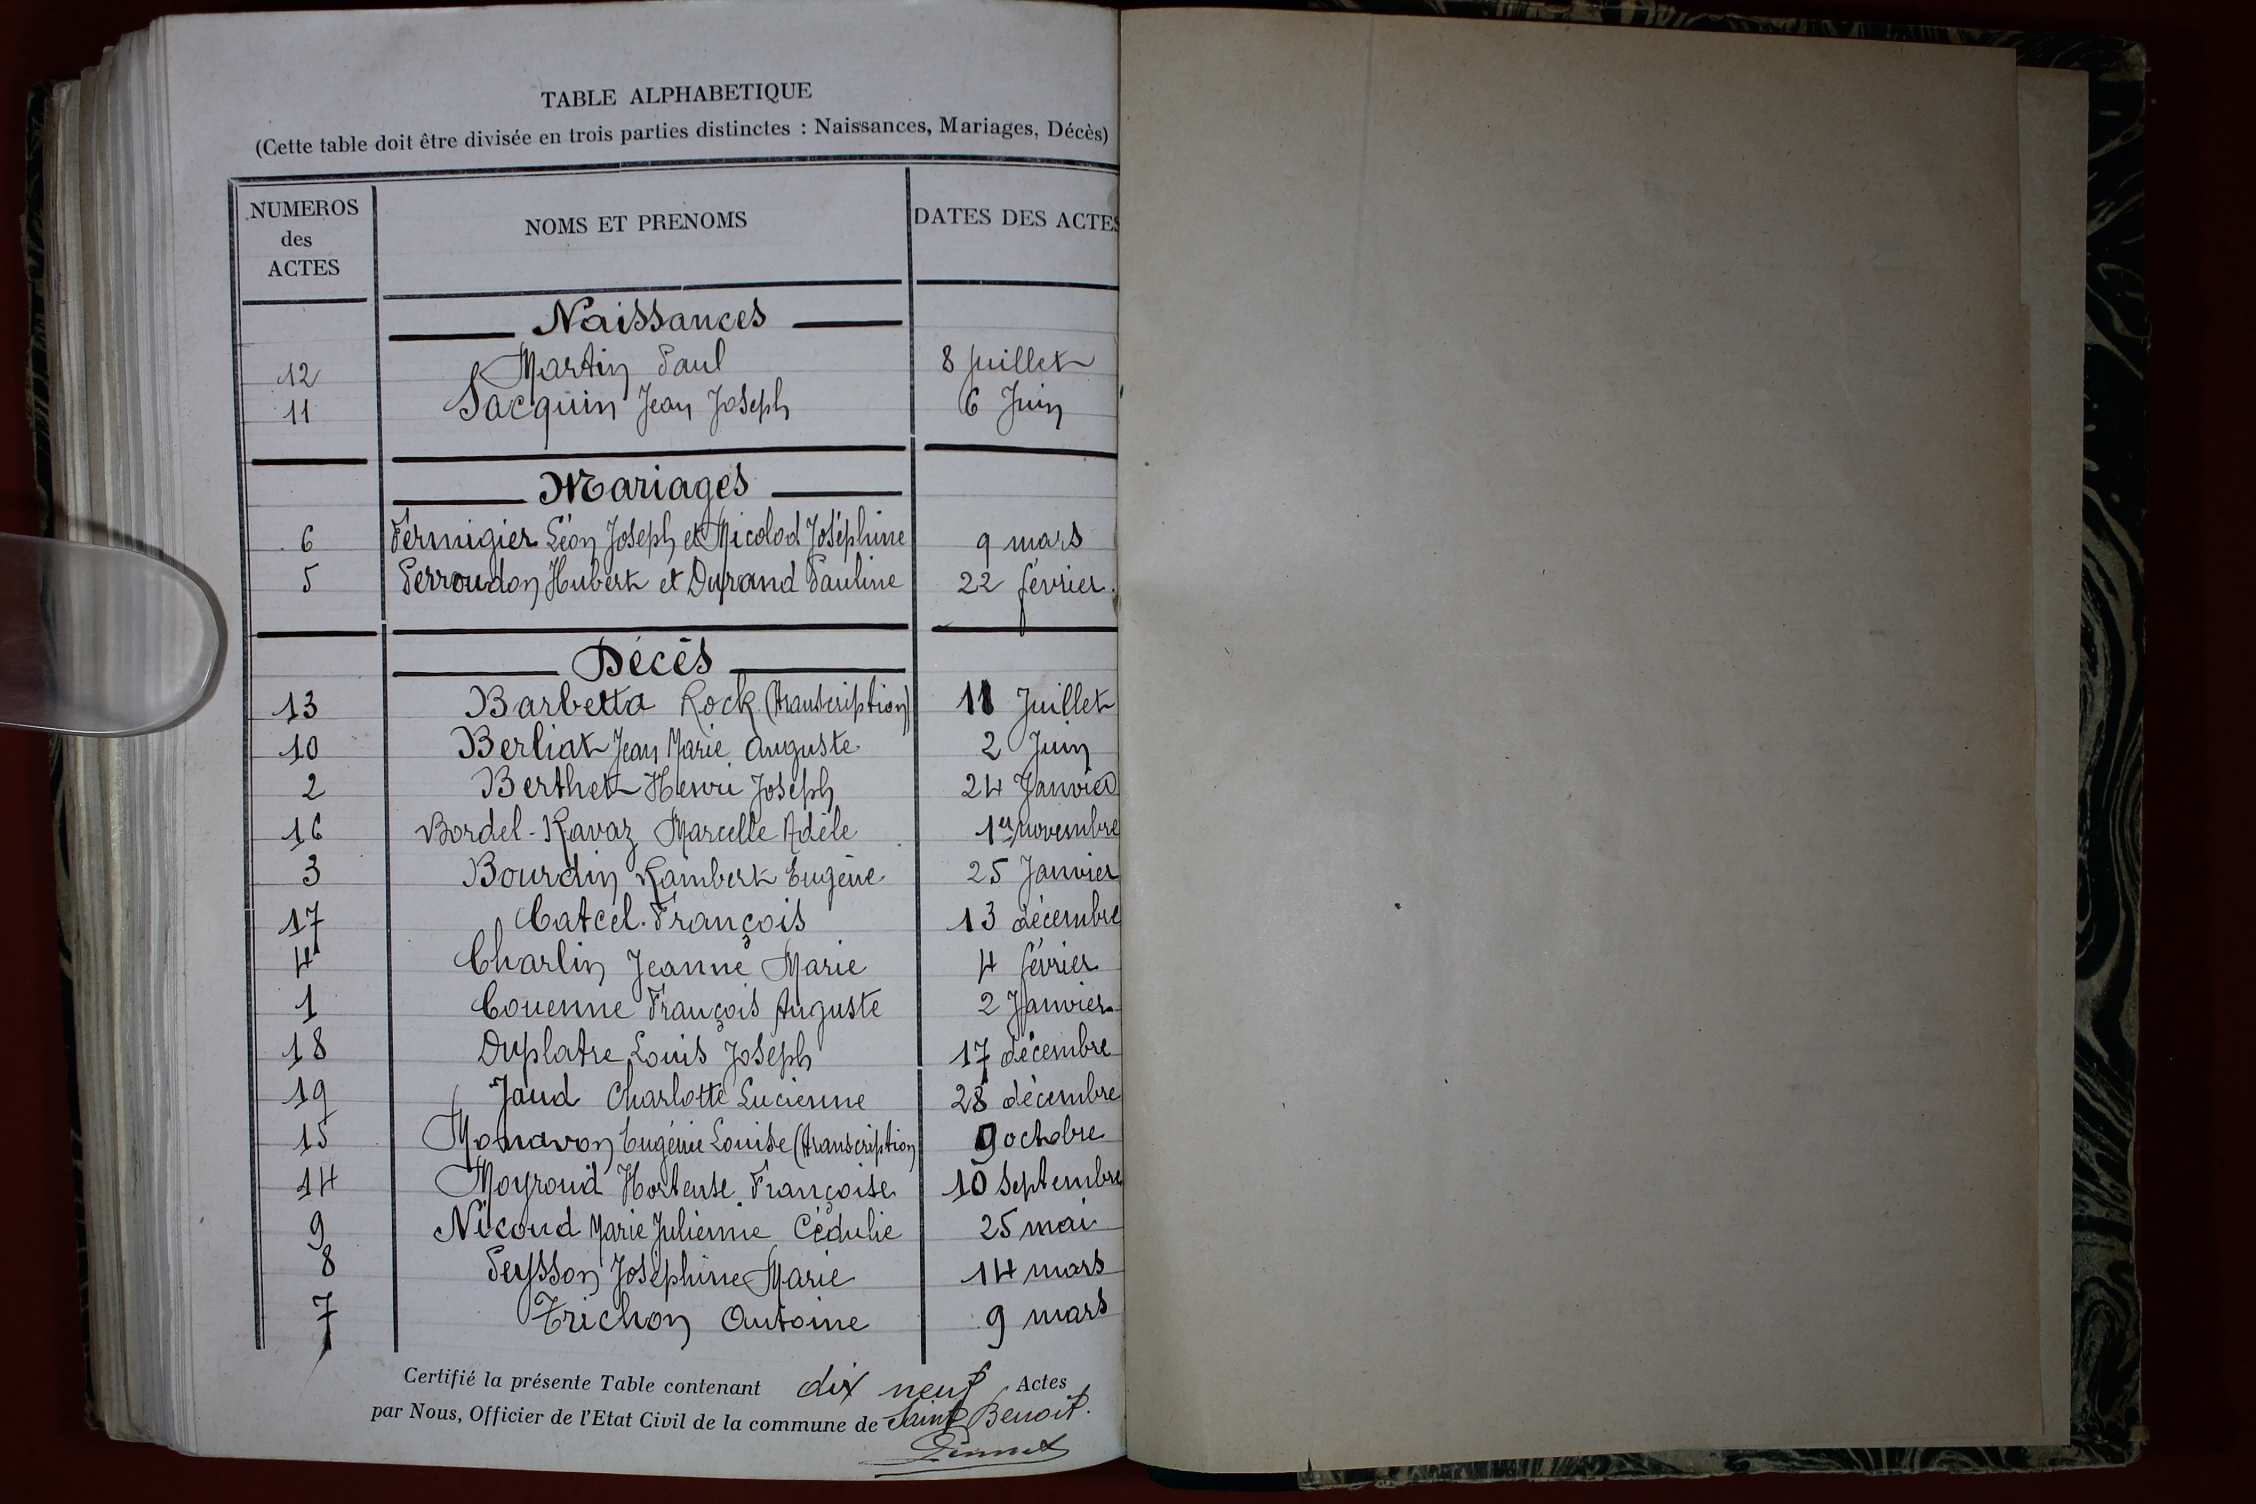 TABLE ALPHABETIQUE
(Cette table doit être divisée en trois parties distinctes : Naissances, Mariages, Décès)
NUMEROS des ACTES NOMS ET PRENOMS DATES DES ACTES
Naissances
12 Martin Paul 8 Juillet
11 Pacquin Jean Joseph 6 Juin
Mariages
6 Fermigier Léon Joseph et Micolod Joséphine 9 mars
5 Perroudon Hubert et Durand Pauline 22 février
Décès
13 Barbetta Rock (transcription) 11 Juillet
10 Berliat Jean Marie Auguste 2 Juin
2 Berthet Henri Joseph 24 Janvier
16 Bordel-Ravaz Marcelle Adèle 1er novembre
3 Bourdin Rambert Eugène 25 Janvier
17 Catcel François 13 décembre
4 Charlin Jeanne Marie 4 février
1 Couenne François Auguste 2 Janvier
18 Duplatre Louis Joseph 17 décembre
19 Jaud Charlotte Lucienne 28 décembre
15 Monavon Eugénie Louise (transcription 9 octobre
14 Moyroud Hortense Françoise 10 Septembre
9 Nicoud Marie Julienne Cédulie 25 mai
8 Peysson Joséphine Marie 14 mars
7 Trichon Antoine 9 mars
Certifié la présente Table contenant dix neuf Actes
par Nous, Officier de l'Etat Civil de la commune de Saint Benoit.